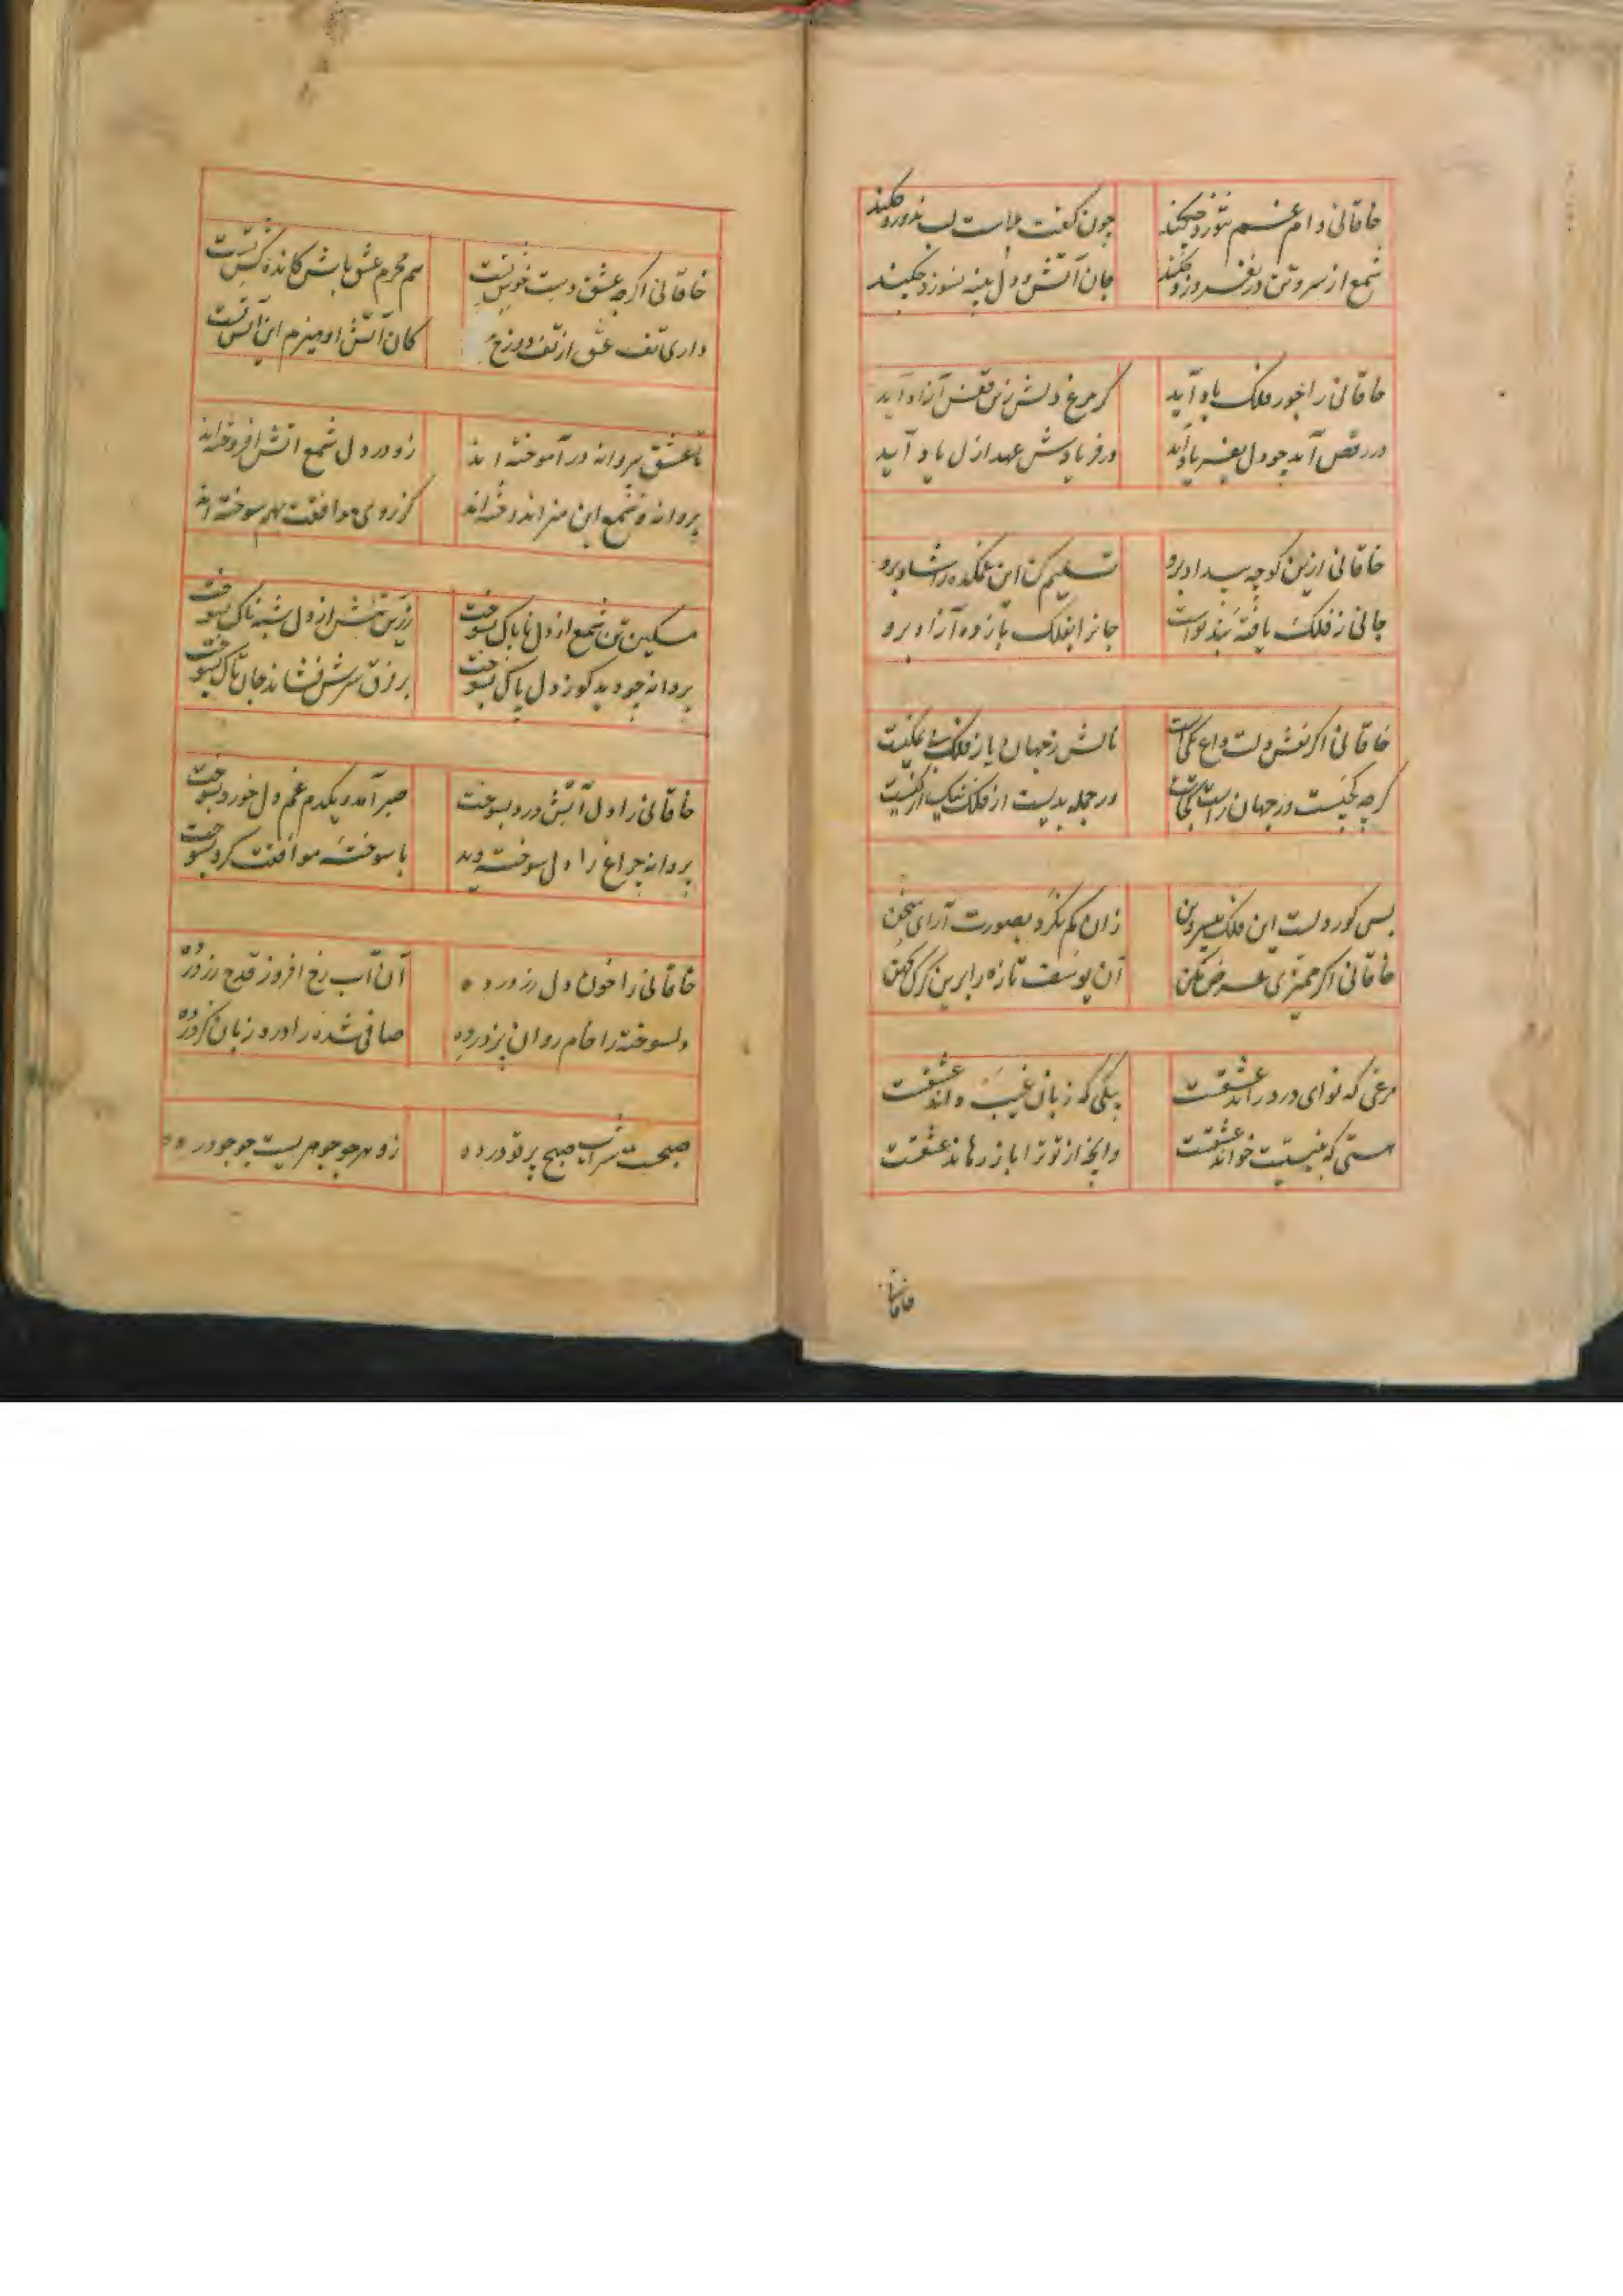 خاقانی وام غم نتوزد چکند
چون گفت بلاست لب ندوزد چکند
شمع از سر و تن در نفروزد چکند
جان آتش و دل پنبه نسوزد چکند
خاقانی را جور فلک یاد آید
گر مرغ دلش زین قفس آزاد آید
در رقص آید چو دل بفریاد آید
وز فریادش عهد ازل یاد آید
خاقانی ازین کوچه بیداد برو
تسلیم کن این غمکده را شاد برو
جانی ز فلک یافته بند تو اوست
جانرا بفلک باز ده آزاد برو
خاقانی اگر نقش دلت داغ یکی است
نالش ز جهان یا ز فلک
گرچه کجیست در جهان راست
ور جمله بدیست از فلک نیک
بس کور دلست این فلک بیسروبن
زان کم نگرد بصورت آرای سخن
خاقانی اگر ممیزی عرض مکن
آن یوسف تازه را برین گرگ کهن
مرغی که نوای درد راند عشقت
پیکی که زبان غیب داند عشقت
هستی که به نیستیت خواند عشقت
وانچ از تو ترا باز رهاند عشقت
خاقانی
خاقانی اگرچه عشق دست خوش تست
هم محرم عشق باش کانده کش تست
داری تف عشق از تف دوزخ
کان آتش او هیزم این آتش تست
تا عشق بپروانه در آموخته اند
زو در دل شمع آتش افروخته اند
پروانه و شمع این هنر اندوخته اند
کز روی موافقت بهم سوخته اند
مسکین تن شمع از دل ناپاک بسوخت
زرین تنش از دل شبه ناک بسوخت
پروانه چو دید کو ز دل پاک بسوخت
بر فرق سرش فشاند جان تاک بسوخت
خاقانی را دل آتش درد بسوخت
صبر آمد و یکدم غم دل خورد بسوخت
پروانه چراغ را دل سوخته دید
با سوخته موافقت کرد بسوخت
خاقانی را خون دل رز در ده
آن آب رخ افروز قدح رز در ده
دلسوخته را خام روان پز در ده
صافی شده را درد زبان گز در ده
صبحست شراب صبح پرتو در ده
زو هر جو جوهریست جو جو در ده